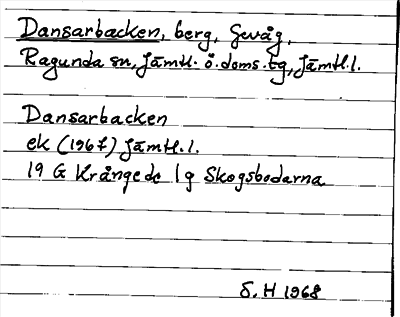 Dansarbacken, berg, Gevåg,
Ragunda sn, Jämtl. ö. doms.tg, Jämtl.l.
Dansarbacken
ek (1967) Jämtl.l.
19 G Krångede 1g Skogsbodarna
S. H 1968